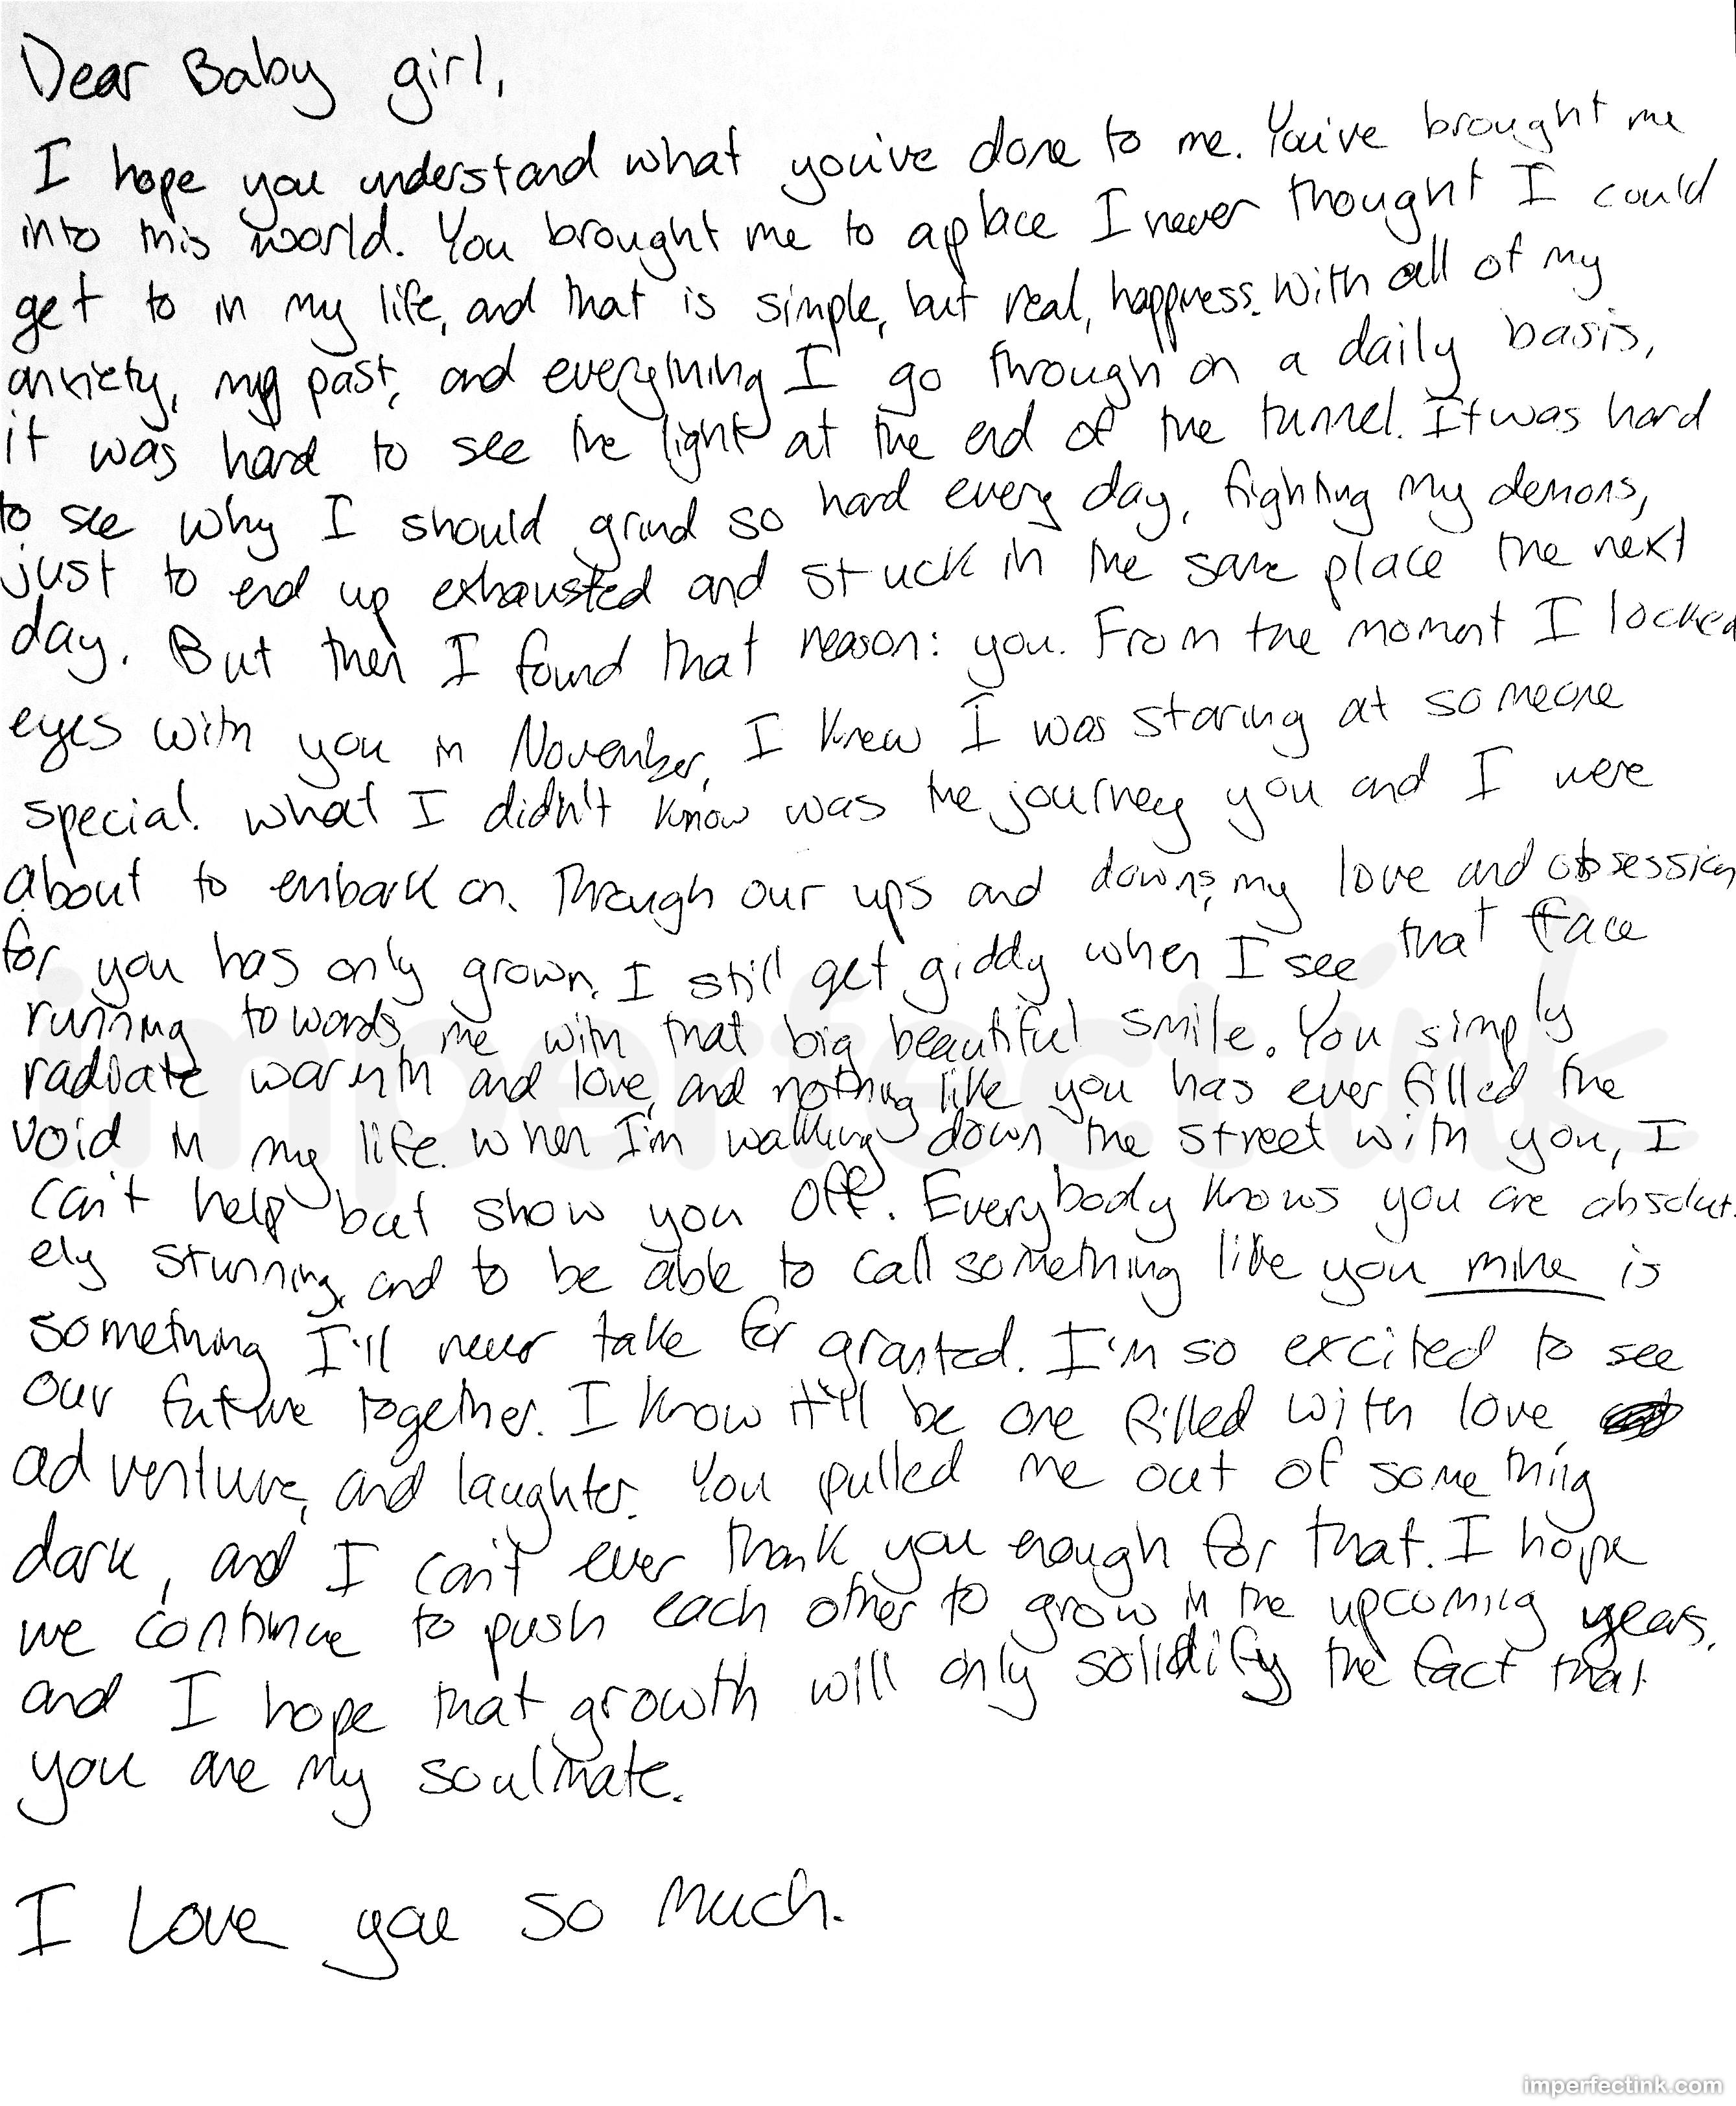 Dear Baby girl,
I hope you understand what you've done to me. You've brought me
into this world. You brought me to a place I never thought I could
get to in my life, and that is simple, but real, happness. With all of my
anxiety, my past, and everything I go through on a daily basis,
it was hard to see the light at the end of the tunnel. It was hard
to see why I should grind so hard every day, fighting my demons,
just to end up exhausted and stuck in the same place the next
day. But then I found that reason: you. From the moment I locked
eyes with you in November, I knew I was staring at someone
special. What I didn't know was the journey you and I were
about to embark on. Through our ups and downs, my love and obsession
for you has only grown. I still get giddy when I see that face
running towards me with that big beautiful smile. You simply
radiate warmth and love, and nothing like you has ever filled the
void in my life. When I'm walking down the street with you, I
can't help but show you off. Everybody knows you are absolut-
ely stunning, and to be able to call something like you mine is
something I'll never take for granted. I'm so excited to see
our future together. I know it'll be one filled with love,
adventure, and laughter. You pulled me out of something
dark, and I can't ever thank you enough for that. I hope
we continue to push each other to grow in the upcoming years,
and I hope that growth will only solidify the fact that
you are my soulmate.
I love you so much.
imperfectink
imperfectink.com